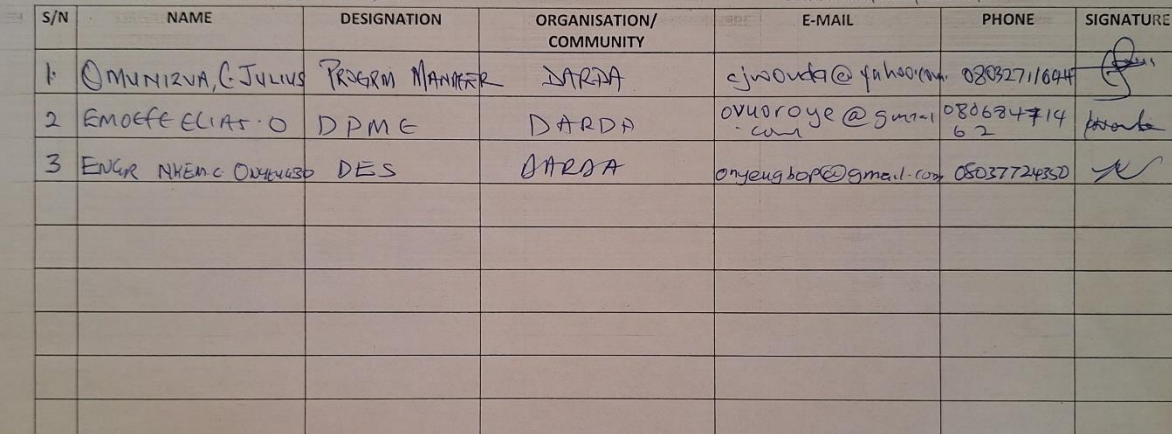 S/N NAME DESIGNATION ORGANISATION/ COMMUNITY E-MAIL PHONE SIGNATURE
1. OMUNIZUA, C. JULIUS PROGRM MANAGER DARDA cjwouda@yahoo.com 08032711644
2 EMOEFE ELIAS. O DPME DARDA ovuoroye@gmail 080684714
.com 62
3 ENGR NKEM. C DES DARDA onyeugbop@gmail.com 08037724350